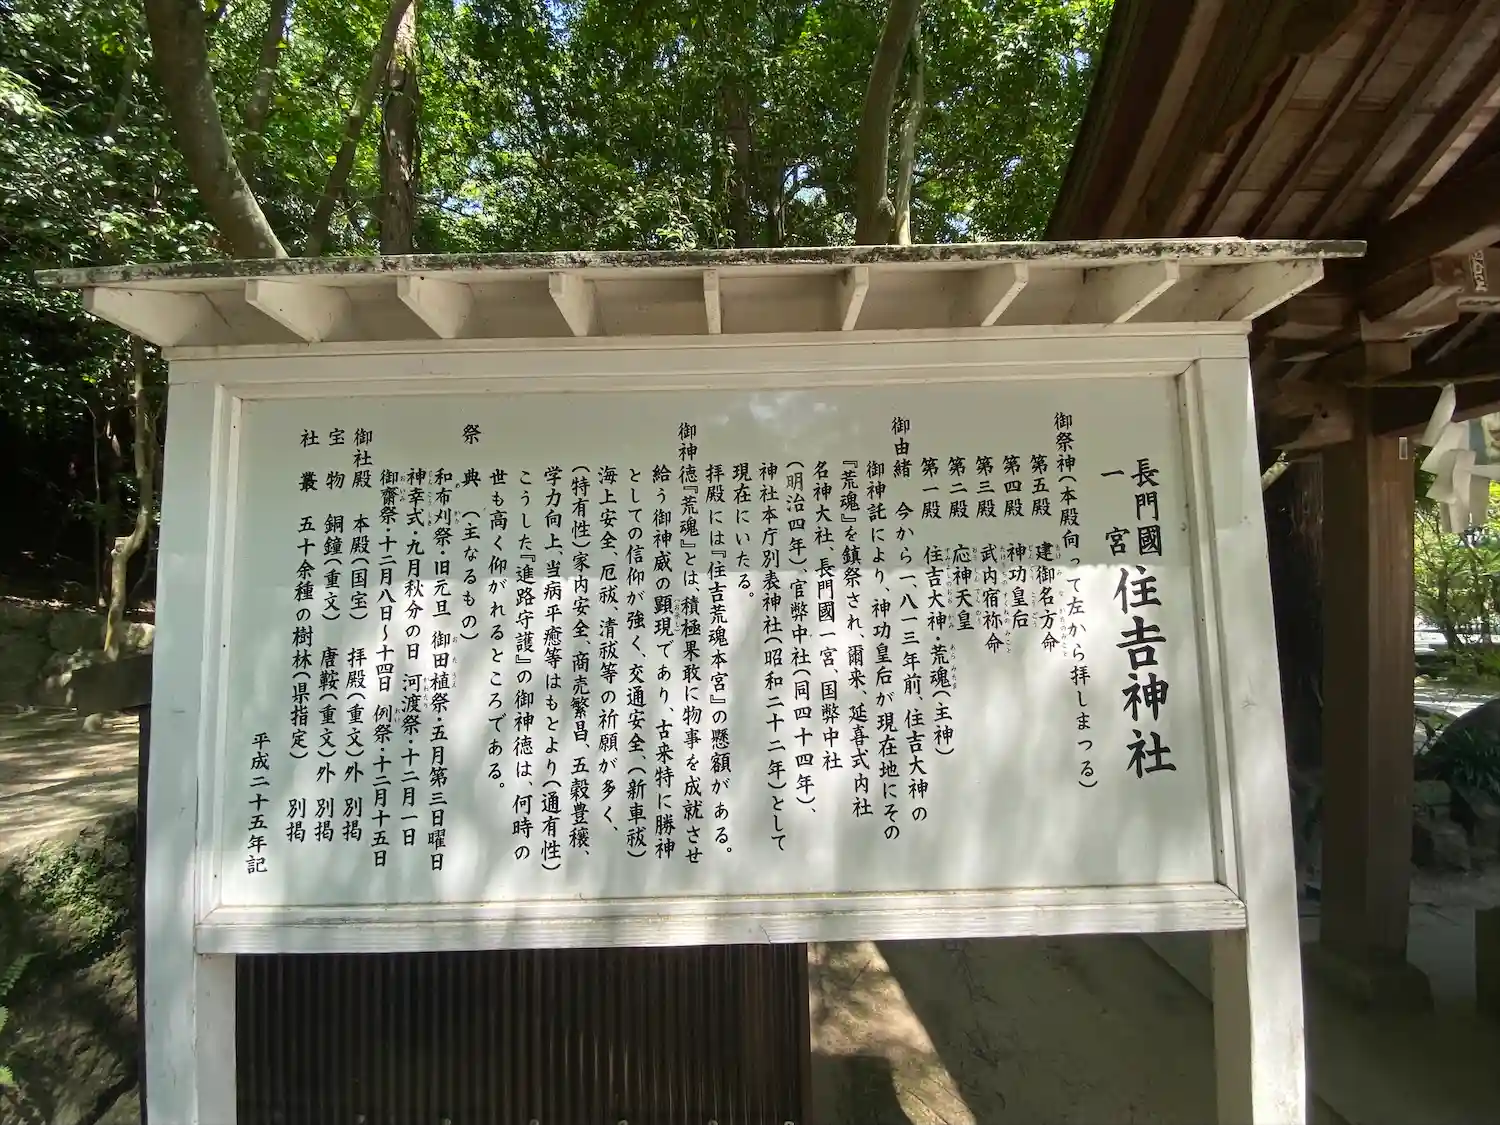 長門國
一宮
住吉神社
御祭神(本殿向って左から拝しまつる)
第五殿 建御名方命
第四殿 神功皇后
第三殿 武内宿祢命
第二殿 応神天皇
第一殿 住吉大神・荒魂(主神)
御由緒 今から一、八一三年前、住吉大神の
御神託により、神功皇后が現在地にその
『荒魂』を鎮祭され、爾来、延喜式内社
名神大社、長門國一宮、国弊中社
(明治四年)、官弊中社(同四十四年)、
神社本庁別表神社(昭和二十二年)として
現在にいたる。
拝殿には『住吉荒魂本宮』の懸額がある。
御神徳『荒魂』とは、積極果敢に物事を成就させ
給う御神威の顕現であり、古来特に勝神
としての信仰が強く、交通安全、(新車祓)
海上安全、厄祓、清祓等の祈願が多く、
(特有性)家内安全、商売繁昌、五穀豊穣、
学力向上、当病平癒等はもとより(通有性)
こうした『進路守護』の御神徳は、何時の
世も高く仰がれるところである。
祭典 (主なるもの)
和布刈祭・旧元旦 御田植祭・五月第三日曜日
神幸式・九月秋分の日 河渡祭・十二月一日
御齋祭・十二月八日〜十四日 例祭・十二月十五日
御社殿 本殿(国宝) 拝殿(重文)外 別掲
宝物 銅鐘(重文) 唐鞍(重文)外 別掲
社叢 五十余種の樹林(県指定) 別掲
平成二十五年記